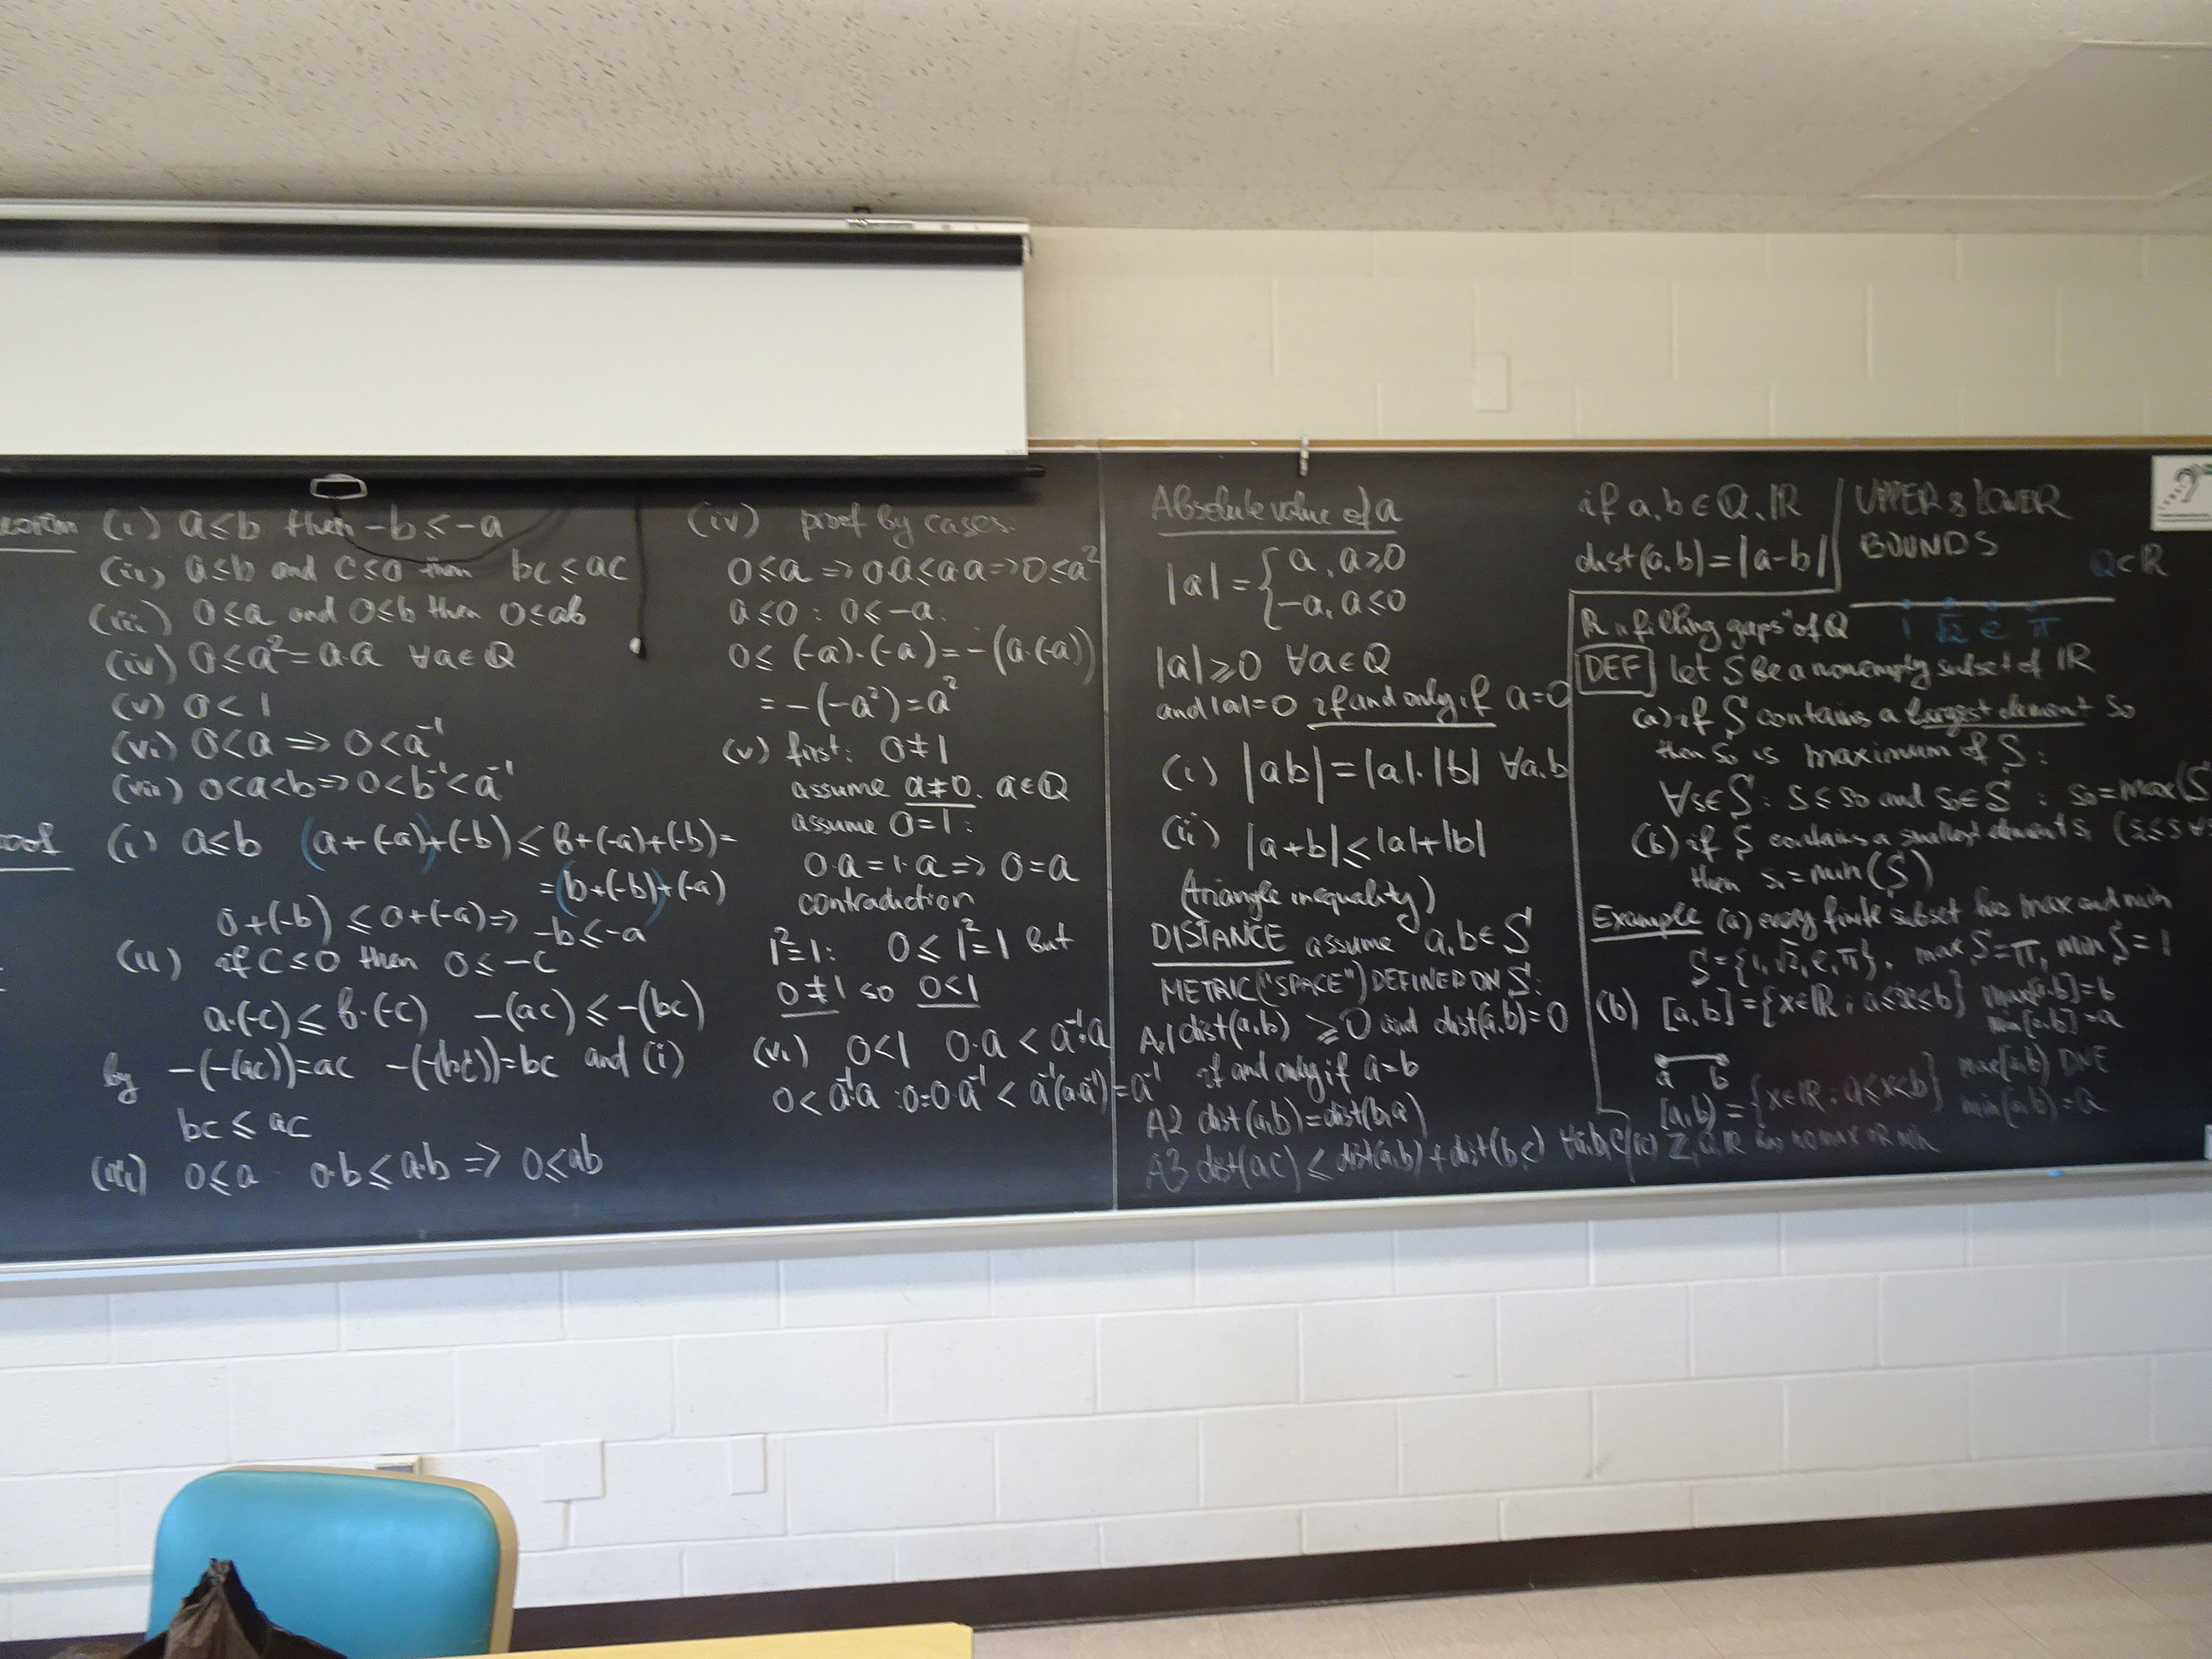 (i) a≤b then -b≤-a
(ii) a≤b and c≤0 then bc≤ac
(iii) 0≤a and 0≤b then 0≤ab
(iv) 0≤a²=a·a ∀a∈Q
(v) 0<1
(vi) 0<a ⇒ 0<a⁻¹
(vii) 0<a<b ⇒ 0<b⁻¹<a⁻¹
(i) a≤b (a+(-a))+(-b) ≤ b+(-a)+(-b)=
=(b+(-b))+(-a)
0+(-b) ≤ 0+(-a) ⇒ -b≤-a
(ii) if c≤0 then 0≤-c
a·(-c) ≤ b·(-c) -(ac) ≤ -(bc)
by -(-(ac))=ac -(-(bc))=bc and (i)
bc ≤ ac
(iii) 0≤a 0·b≤a·b ⇒ 0≤ab
(iv) proof by cases:
0≤a ⇒ 0·a≤a·a ⇒ 0≤a²
a≤0: 0≤-a.
0≤ (-a)·(-a)=-(a·(-a))
= -(-a²)=a²
(v) first: 0≠1
assume a≠0. a∈Q
assume 0=1:
0·a=1·a ⇒ 0=a
contradiction
1²=1: 0≤1²=1 but
0≠1 so 0<1
(vi) 0<1 0·a < a⁻¹·a
0<a⁻¹a : 0=0·a⁻¹ < a⁻¹(a·a⁻¹)=a⁻¹
Absolute value of a
|a| = { a, a≥0
-a, a≤0
|a|≥0 ∀a∈Q
and |a|=0 if and only if a=0
(i) |ab|=|a|·|b| ∀a,b
(ii) |a+b|≤|a|+|b|
(triangle inequality)
DISTANCE assume a,b∈S
METRIC ("SPACE") DEFINED ON S:
A1 dist(a,b) ≥0 and dist(a,b)=0
if and only if a=b
A2 dist(a,b)=dist(b,a)
A3 dist(a,c) ≤ dist(a,b)+dist(b,c) ∀a,b,c
if a,b∈Q,ℝ
dist(a,b)=|a-b|
UPPER & LOWER
BOUNDS
Q⊂ℝ
ℝ "filling gaps" of Q 1 √2 e π
DEF let S be a nonempty subset of ℝ
(a) if S contains a largest element s₀
then s₀ is maximum of S:
∀s∈S: s≤s₀ and s₀∈S : s₀=max(S
(b) if S contains a smallest element s₁ (s₁≤s
then s₁=min(S)
Example (a) every finite subset has max and min
S={1,√2,e,π}, max S=π, min S=1
(b) [a,b]={x∈ℝ: a≤x≤b} max[a,b]=b
min[a,b]=a
a b
[a,b)={x∈ℝ: a≤x<b} max[a,b) DNE
min[a,b)=a
(c) Z, Q, ℝ has no max or min